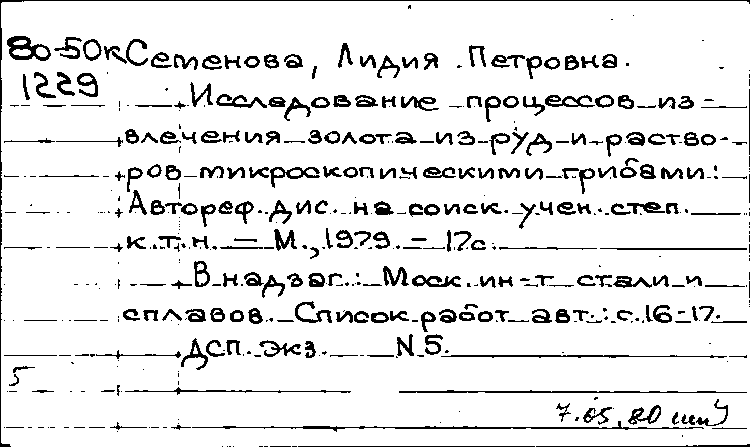 80-50к Семенова, Лидия Петровна.
1229 Исследование процессов из-
влечения золота из руд и раство-
ров микроскопическими грибами:
Автореф. дис. на соиск. учен. степ.
к.т.н. – М., 1979. – 17с.
В надзаг.: Моск. ин-т стали и
сплавов. Список работ авт.: с. 16-17.
ДСП. экз. N 5.
5
7.05.80